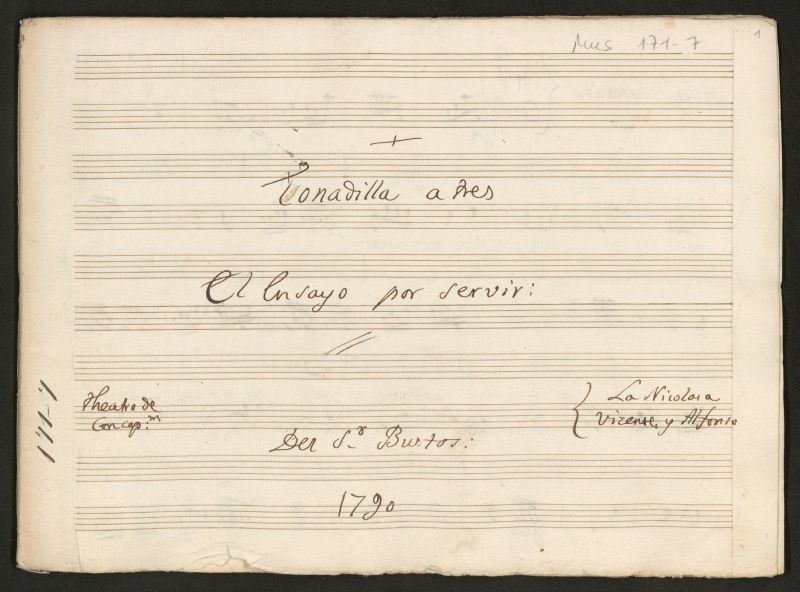 Mus 171-7
1
Tonadilla a tres
El Ensayo por servir:
171-7
Theatro de
Concep:n
La Nicolasa
Vicente, y Alfonso
Del S.r Bustos:
1790